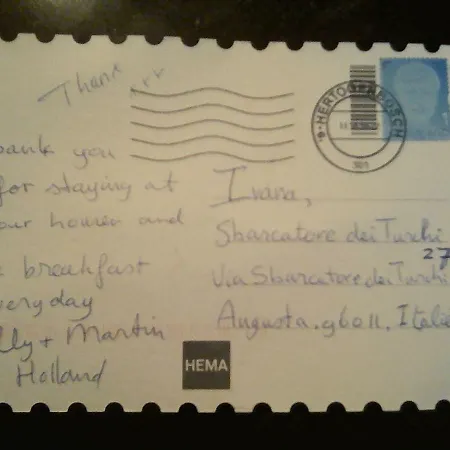 Thank
ank you
for staying at
our houren and
breakfast
veryday
lly + Martin
Holland
'S-HERTOGENBOSCH
Ivana,
Sbarcatore dei Turchi
27
Via Sbarcatore dei Turchi
Augusta. 96011. Italie
HEMA